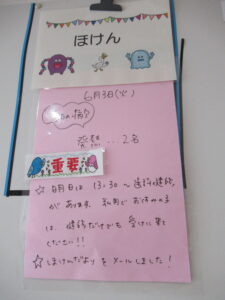 ほけん
6月3日(火)
発熱…2名
重要
☆ 毎月日は 13:30〜 歯科健診
があります。私用で お休みの子
は、健診だけでも 受けに来て
ください!!
☆ ほけんだより を メールしました!